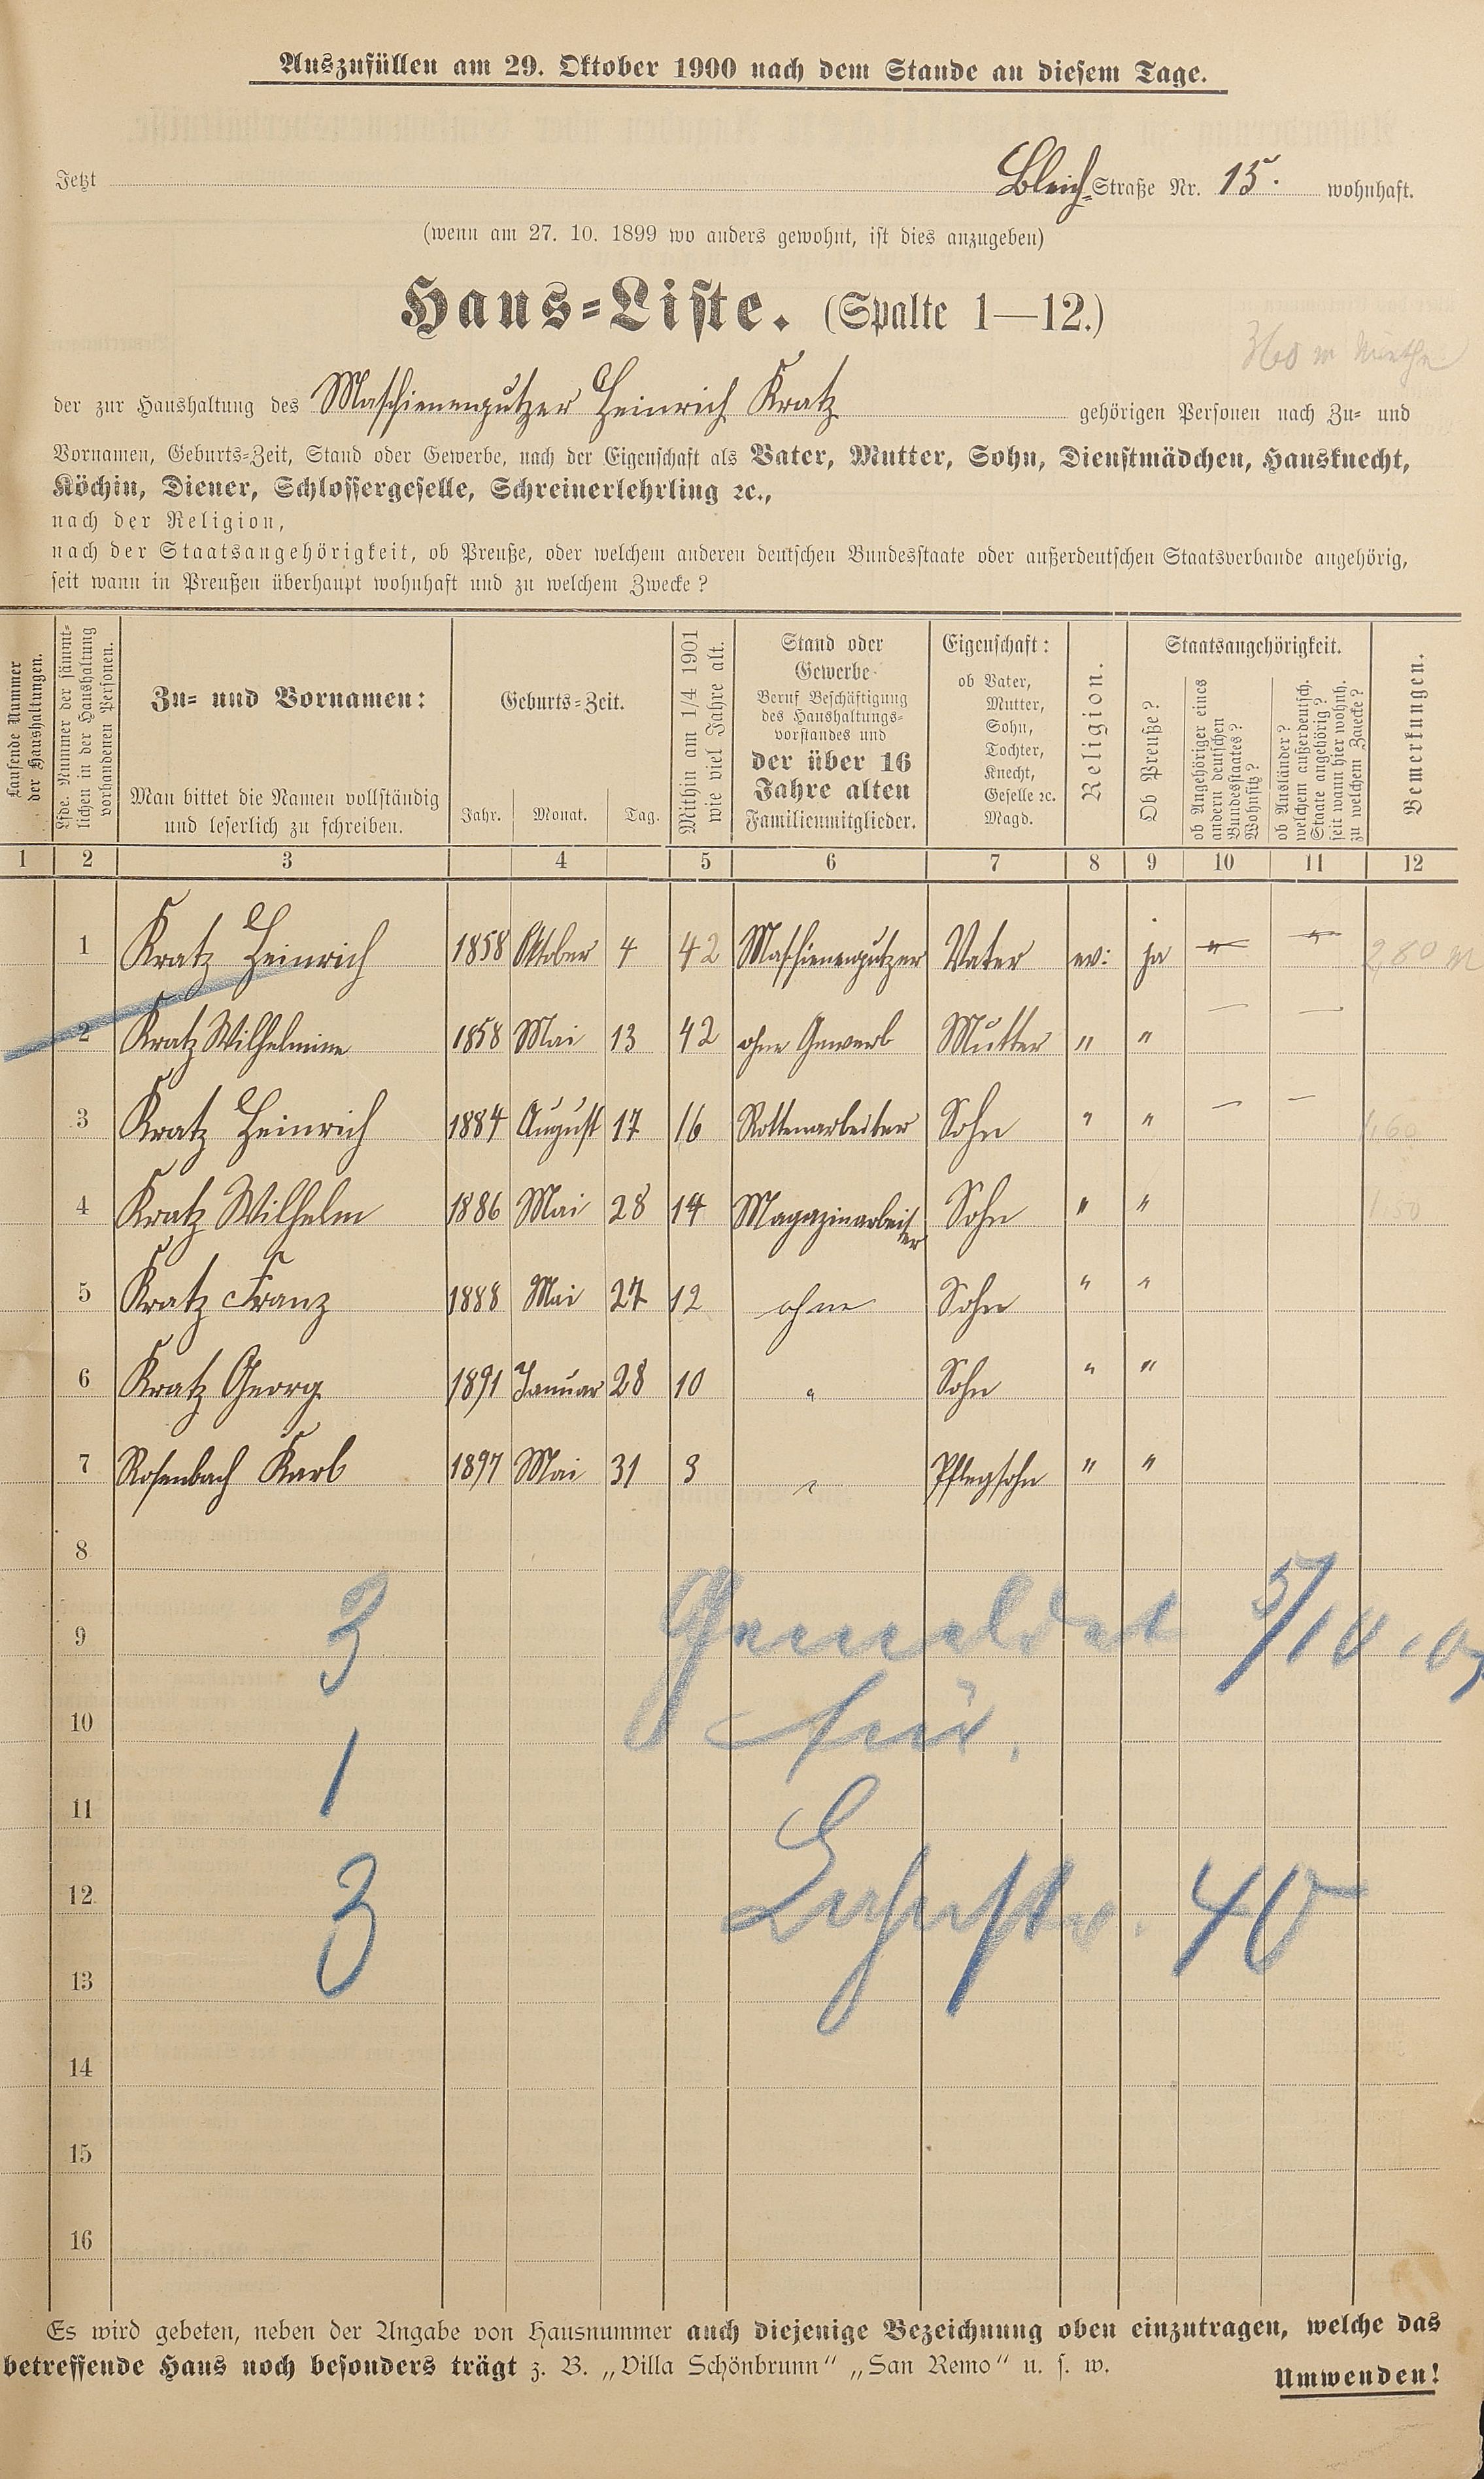 Auszufüllen am 29. Oktober 1900 nach dem Stande an diesem Tage.
Jetzt Bleich-Straße Nr. 15. wohnhaft.
(wenn am 27. 10. 1899 wo anders gewohnt, ist dies anzugeben)
Haus-Liste. (Spalte 1—12.)
360 M Miethe
der zur Haushaltung des Maschienenputzer Heinrich Kratz gehörigen Personen nach Zu- und
Vornamen, Geburts-Zeit, Stand oder Gewerbe, nach der Eigenschaft als Vater, Mutter, Sohn, Dienstmädchen, Hausknecht,
Köchin, Diener, Schlossergeselle, Schreinerlehrling ꝛc.,
nach der Religion,
nach der Staatsangehörigkeit, ob Preuße, oder welchem anderen deutschen Bundesstaate oder außerdeutschen Staatsverbande angehörig,
seit wann in Preußen überhaupt wohnhaft und zu welchem Zwecke?
Laufende Nummer
der Haushaltungen.
Lfde. Nummer der sämmt-
lichen in der Haushaltung
vorhandenen Personen.
Zu- und Vornamen:
Man bittet die Namen vollständig
und leserlich zu schreiben.
Geburts-Zeit.
Jahr. Monat. Tag.
Mithin am 1/4 1901
wie viel Jahre alt.
Stand oder
Gewerbe
Beruf Beschäftigung
des Haushaltungs-
vorstandes und
der über 16
Jahre alten
Familienmitglieder.
Eigenschaft:
ob Vater,
Mutter,
Sohn,
Tochter,
Knecht,
Geselle ꝛc.
Magd.
Religion.
Staatsangehörigkeit.
Ob Preuße?
ob Angehöriger eines
andern deutschen
Bundesstaates?
Wohnsitz?
ob Ausländer?
welchem außerdeutsch.
Staate angehörig?
seit wann hier wohnh.
zu welchem Zwecke?
Bemerkungen.
1 2 3 4 5 6 7 8 9 10 11 12
1 Kratz Heinrich 1858 Oktober 4 42 Maschienenputzer Vater ev: ja " " 2,80 M
2 Kratz Wilhelmine 1858 Mai 13 42 ohne Gewerb Mutter " " — —
3 Kratz Heinrich 1884 August 17 16 Rottenarbeiter Sohn " " — — 1,60
4 Kratz Wilhelm 1886 Mai 28 14 Magazinarbeiter Sohn " " 1.50
5 Kratz Franz 1888 Mai 27 12 ohne Sohn " "
6 Kratz Georg 1891 Januar 28 10 " Sohn " "
7 Rosenbach Karl 1897 Mai 31 3 " Pflegsohn " "
8
9 3 Gemeldet 5/10.
10 für.
11 1
12 3 40
13
14
15
16
Es wird gebeten, neben der Angabe von Hausnummer auch diejenige Bezeichnung oben einzutragen, welche das
betreffende Haus noch besonders trägt z. B. „Villa Schönbrunn“ „San Remo“ u. s. w.
Umwenden!